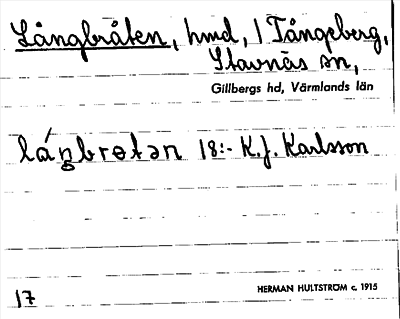 Långbråten, hmd, / Tångeberg,
Stavnäs sn,
Gillbergs hd, Värmlands län
lángbrɵtən 18:- K.J. Karlsson
17
HERMAN HULTSTRÖM c. 1915